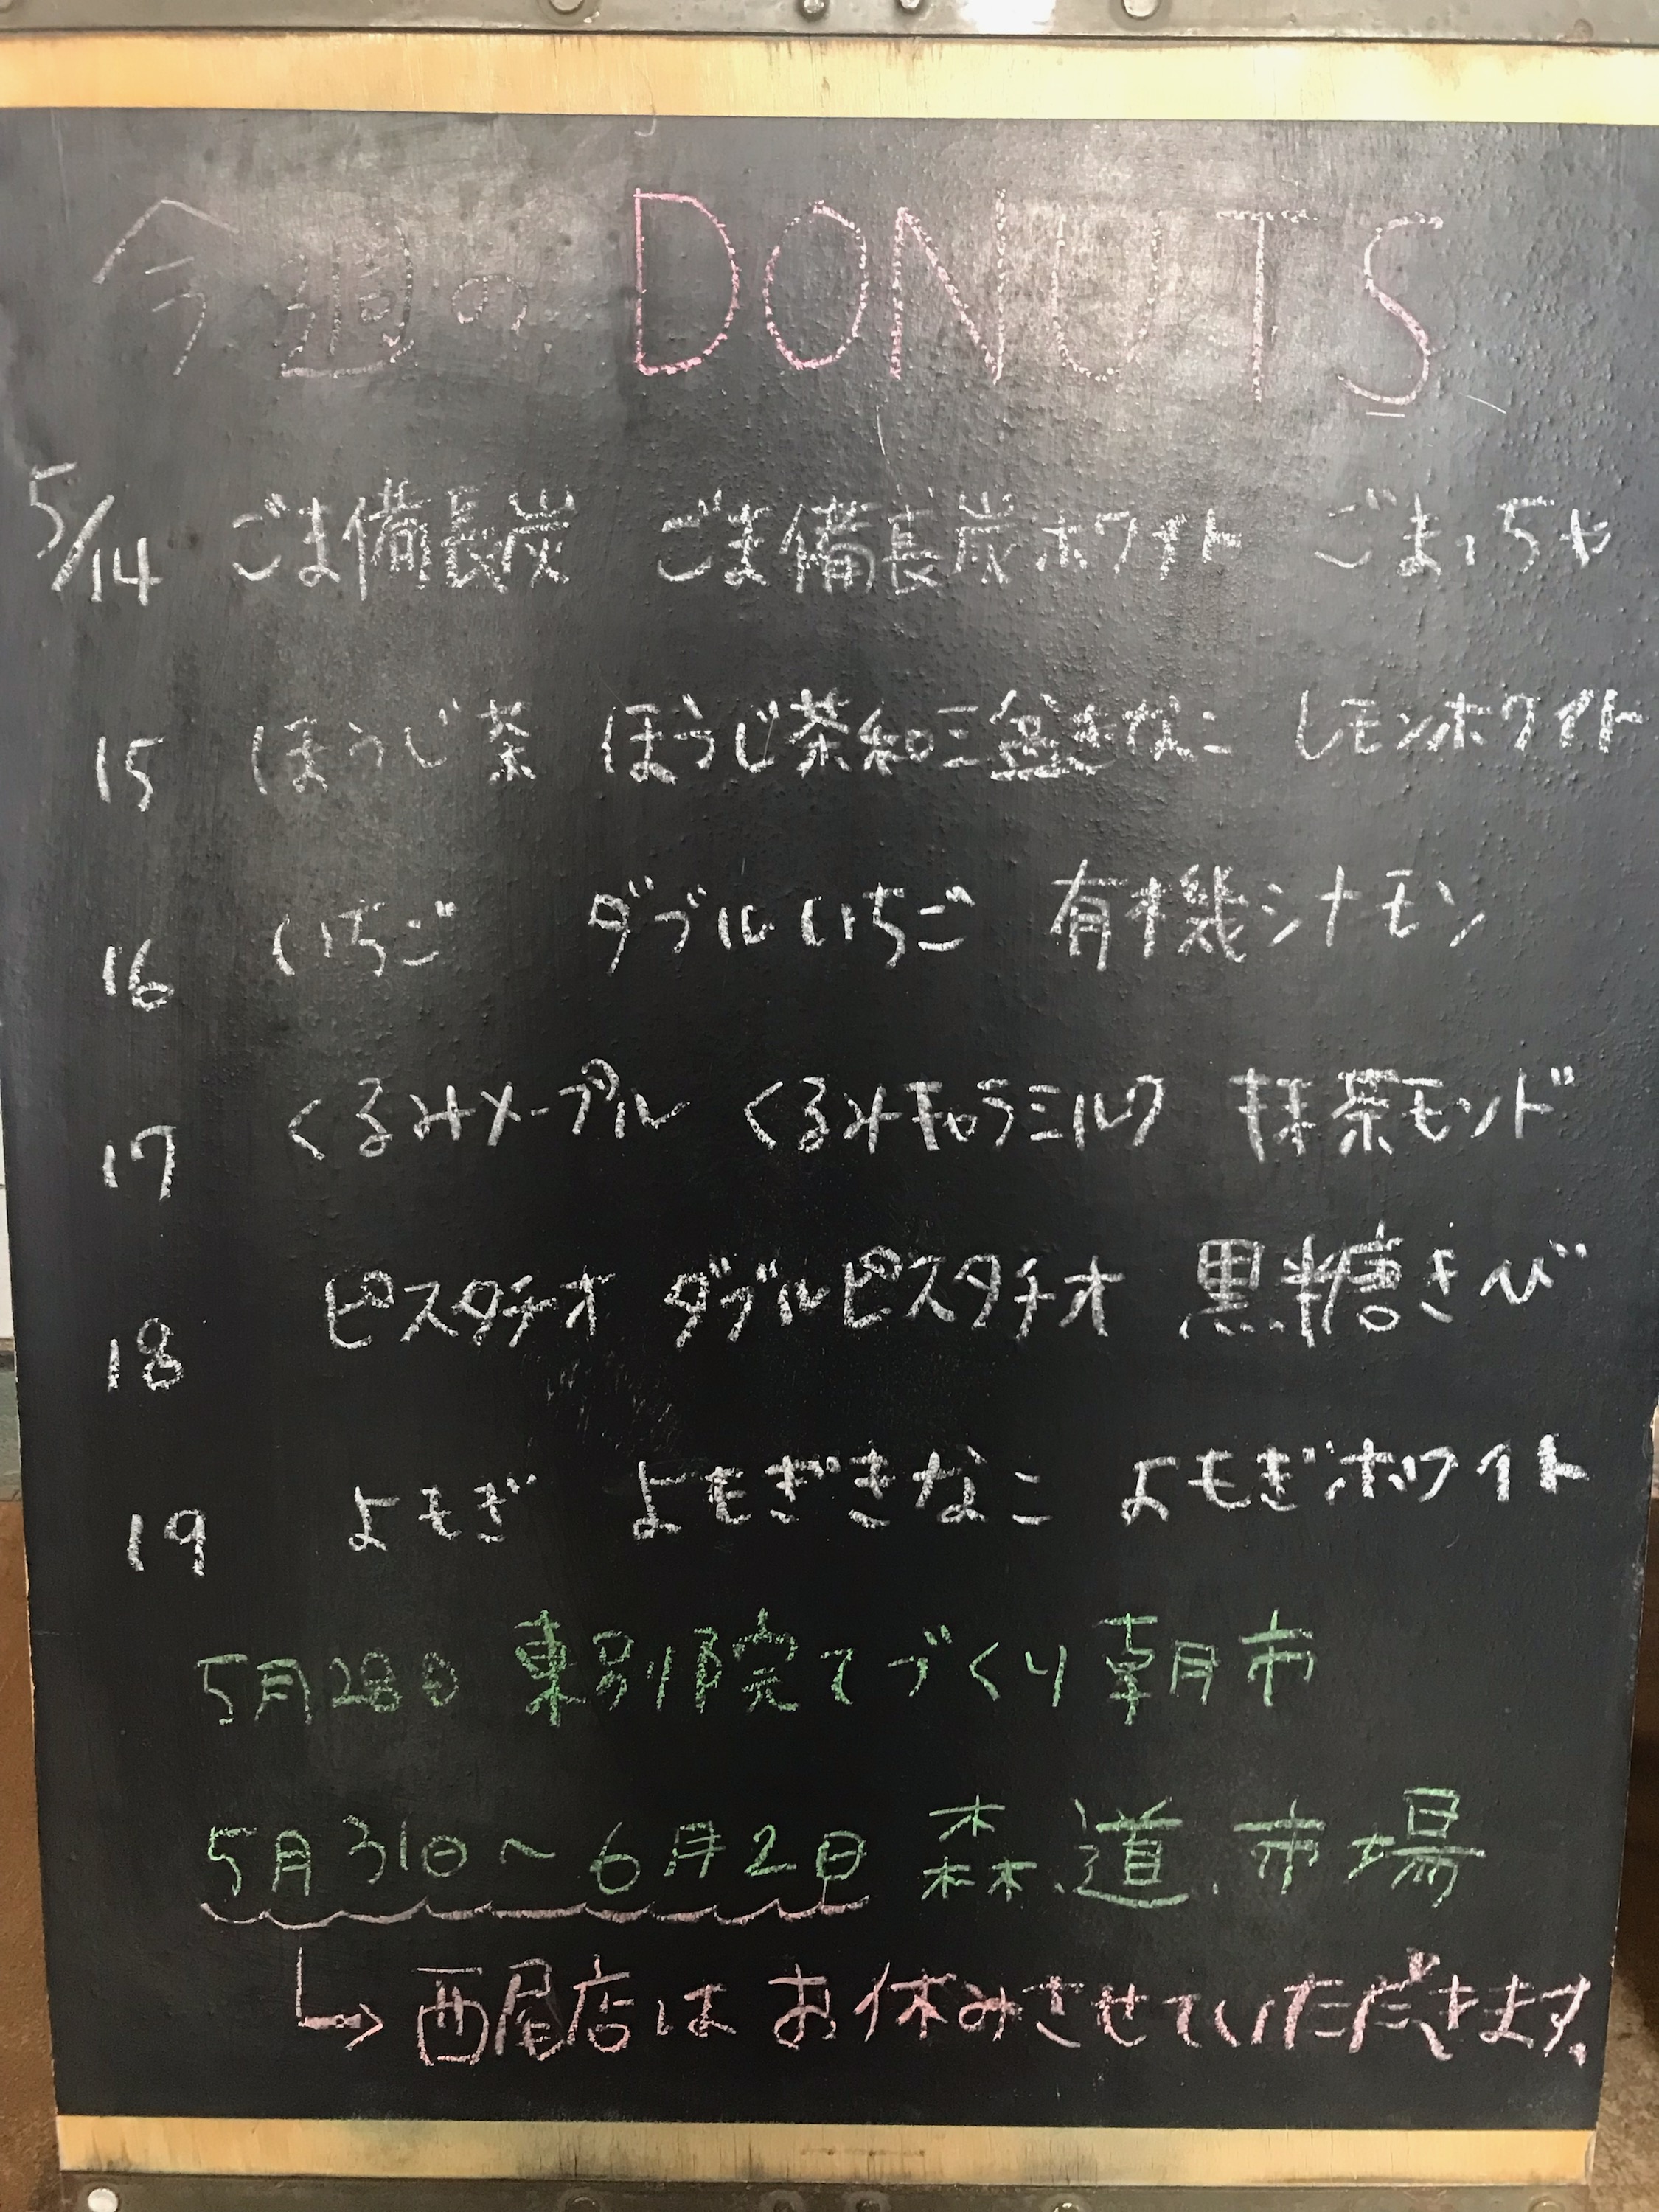 今週の DONUTS
5/14 ごま備長炭 ごま備長炭ホワイト ごまっちゃ
15 ほうじ茶 ほうじ茶和三盆きなこ レモンホワイト
16 いちご ダブルいちご 有機シナモン
17 くるみメープル くるみキャラミルク 抹茶モンド
18 ピスタチオ ダブルピスタチオ 黒糖きび
19 よもぎ よもぎきなこ よもぎホワイト
5月28日 東別院てづくり朝市
5月31日〜6月2日 森、道、市場
↳ 西尾店は お休みさせていただきます。